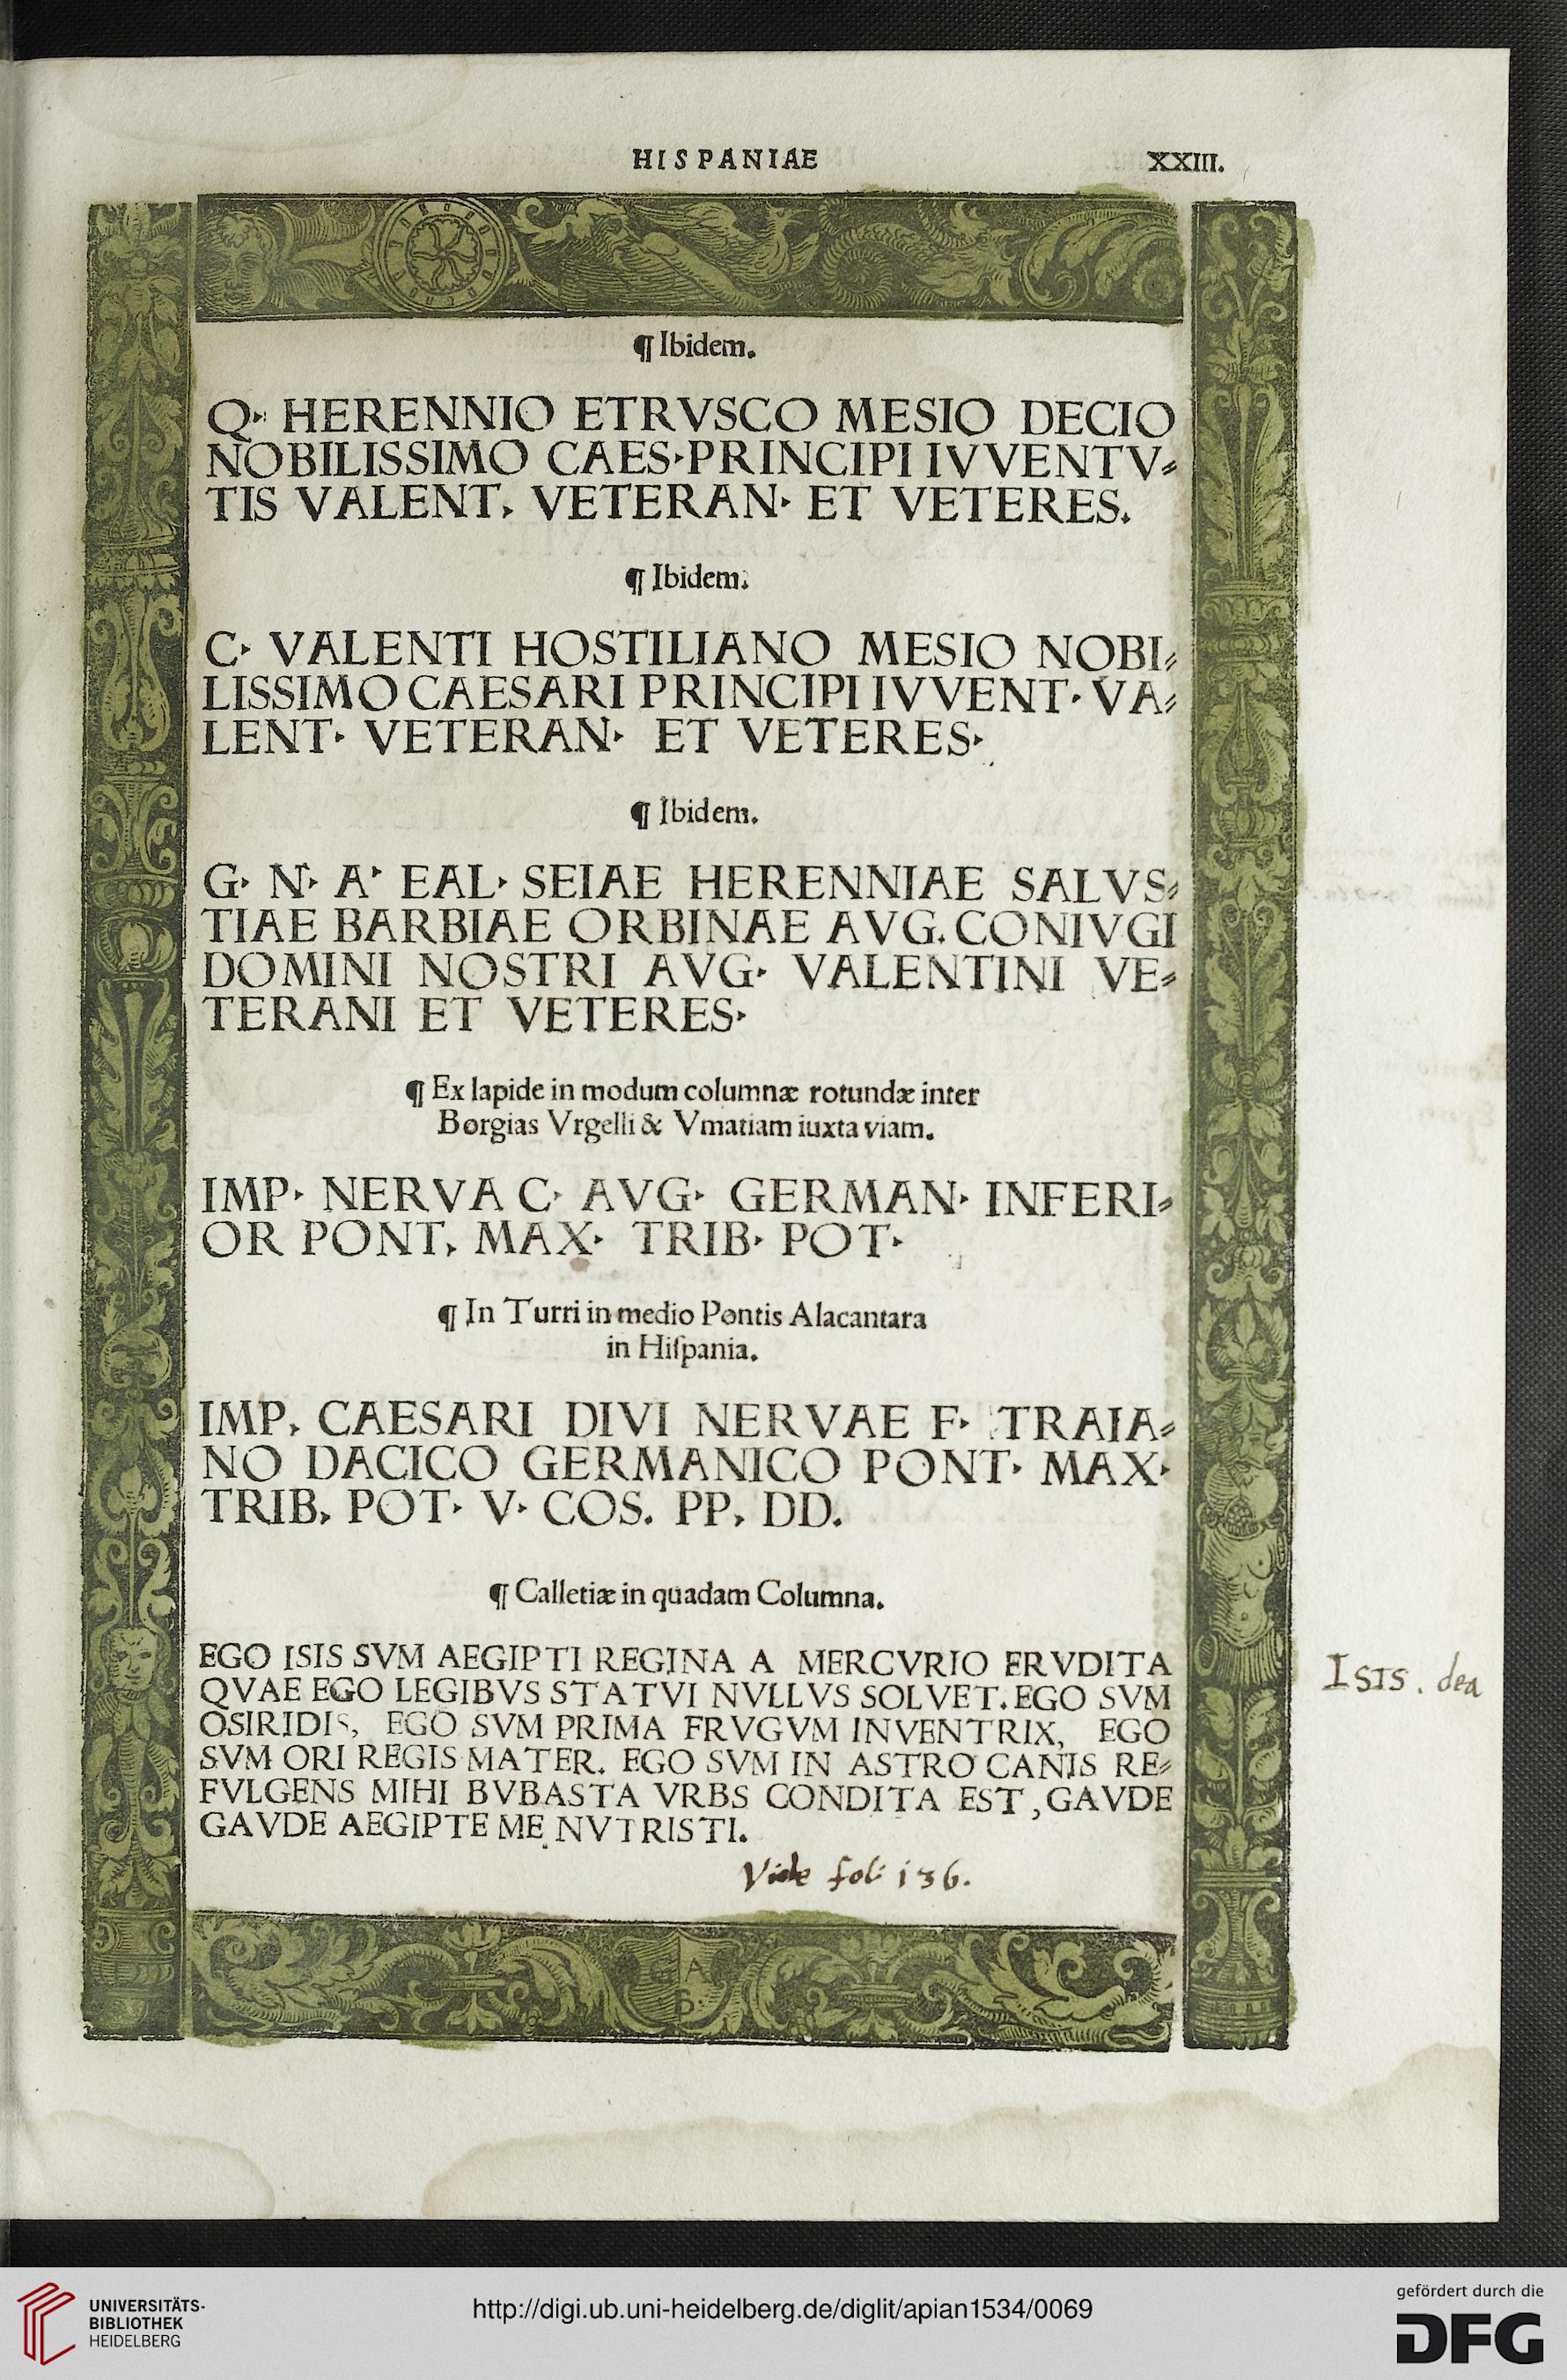 HISPANIAE XXIII.
¶ Ibidem.
Q· HERENNIO ETRVSCO MESIO DECIO
NOBILISSIMO CAES·PRINCIPI IVVENTV⸗
TIS VALENT, VETERAN· ET VETERES.
¶ Ibidem.
C· VALENTI HOSTILIANO MESIO NOBI⸗
LISSIMO CAESARI PRINCIPI IVVENT· VA⸗
LENT· VETERAN· ET VETERES·
¶ Ibidem.
G· N· A· EAL· SEIAE HERENNIAE SALVS⸗
TIAE BARBIAE ORBINAE AVG. CONIVGI
DOMINI NOSTRI AVG· VALENTINI VE⸗
TERANI ET VETERES·
¶ Ex lapide in modum columnæ rotundæ inter
Borgias Vrgelli & Vmatiam iuxta viam.
IMP· NERVA C· AVG· GERMAN· INFERI⸗
OR PONT, MAX· TRIB· POT·
¶ In Turri in medio Pontis Alacantara
in Hiſpania.
IMP, CAESARI DIVI NERVAE F· TRAIA⸗
NO DACICO GERMANICO PONT· MAX·
TRIB, POT· V· COS. PP, DD.
¶ Calletiæ in quadam Columna.
EGO ISIS SVM AEGIPTI REGINA A MERCVRIO ERVDITA
QVAE EGO LEGIBVS STATVI NVLLVS SOLVET. EGO SVM
OSIRIDIS, EGO SVM PRIMA FRVGVM INVENTRIX, EGO
SVM ORI REGIS MATER. EGO SVM IN ASTRO CANIS RE⸗
FVLGENS MIHI BVBASTA VRBS CONDITA EST, GAVDE
GAVDE AEGIPTE ME NVTRISTI.
ISIS. dea
Vide fol: 136.
A
B
UNIVERSITÄTS-
BIBLIOTHEK
HEIDELBERG
http://digi.ub.uni-heidelberg.de/diglit/apian1534/0069
gefördert durch die
DFG